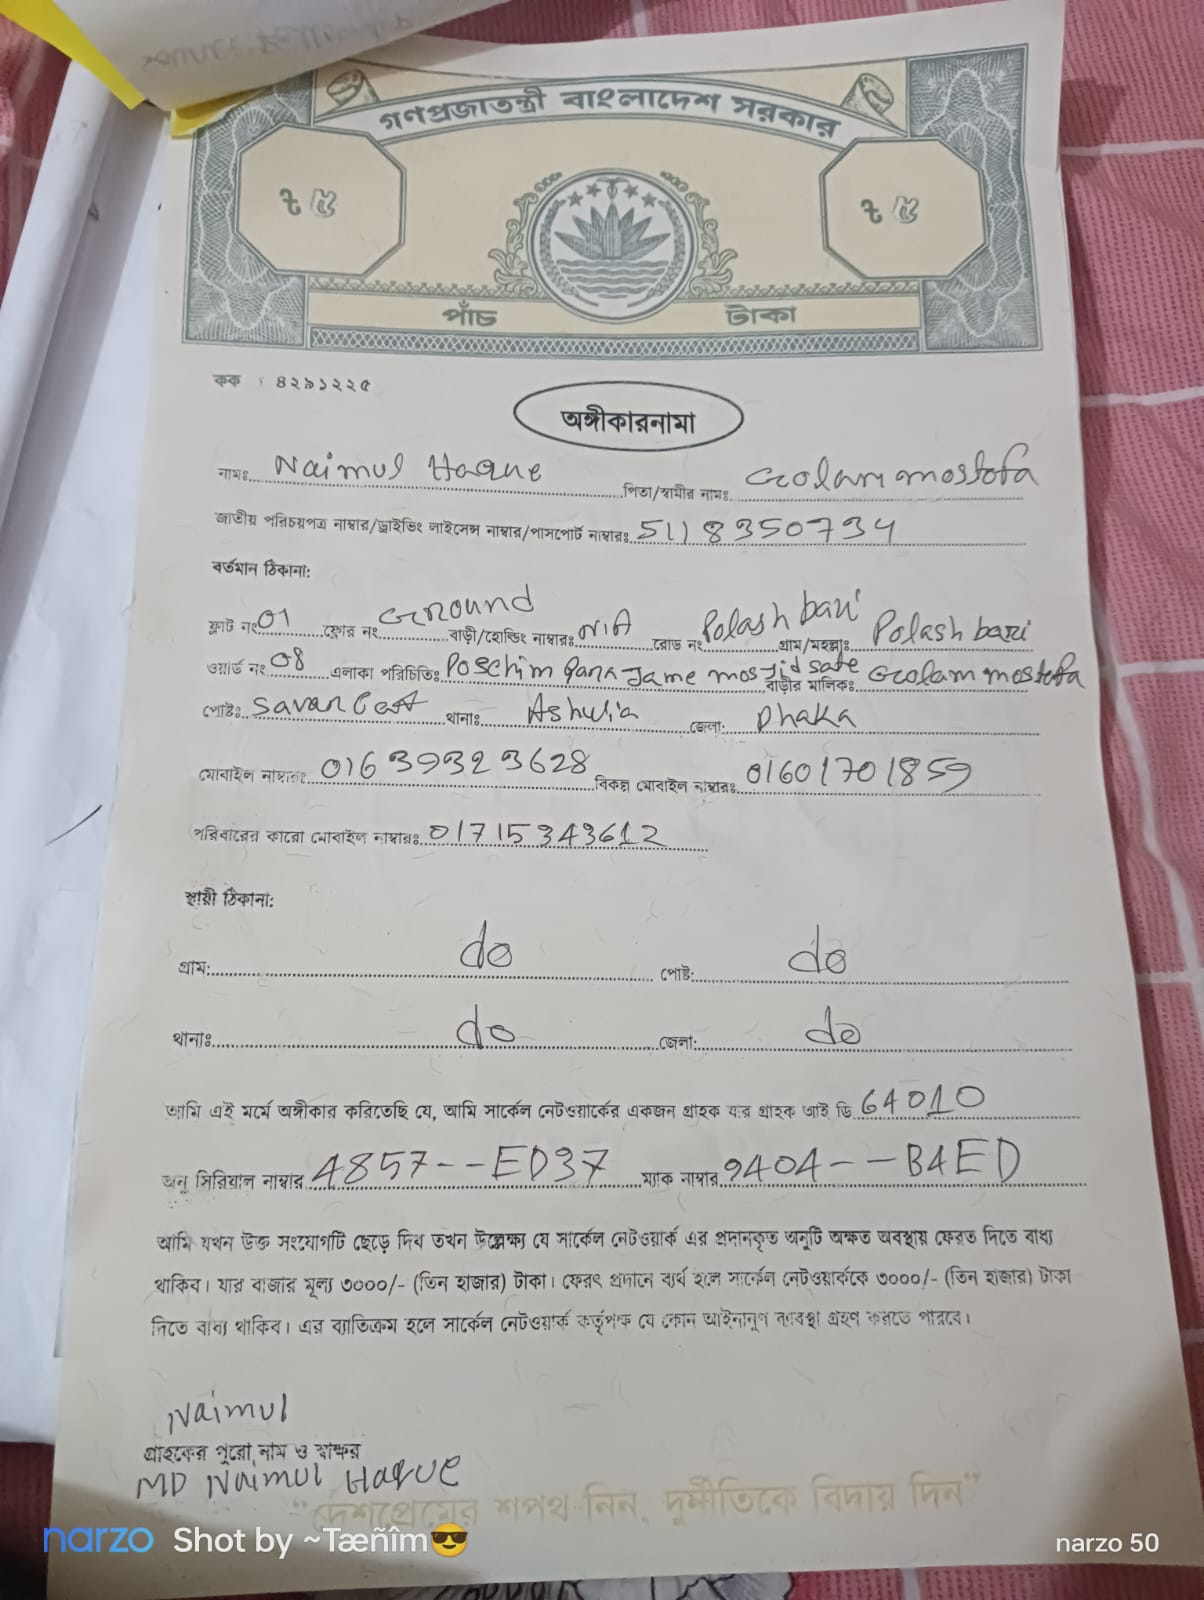 গণপ্রজাতন্ত্রী বাংলাদেশ সরকার
৳ ৫ ৳ ৫
পাঁচ টাকা
কক : ৪২৯১২২৫
অঙ্গীকারনামা
নামঃ Naimul Haque পিতা/স্বামীর নামঃ Golam mostofa
জাতীয় পরিচয়পত্র নাম্বার/ড্রাইভিং লাইসেন্স নাম্বার/পাসপোর্ট নাম্বারঃ 5118350734
বর্তমান ঠিকানা:
ফ্লাট নং 01 ফ্লোর নং Ground বাড়ী/হোল্ডিং নাম্বারঃ N/A রোড নং Polash bari গ্রাম/মহল্লাঃ Polash bari
ওয়ার্ড নং 08 এলাকা পরিচিতিঃ Poschim para Jame mosjid sate বাড়ীর মালিকঃ Golam mostofa
পোষ্টঃ Savar Cant থানাঃ Ashulia জেলা: Dhaka
মোবাইল নাম্বারঃ 01639323628 বিকল্প মোবাইল নাম্বারঃ 01601701859
পরিবারের কারো মোবাইল নাম্বারঃ 01715343612
স্থায়ী ঠিকানা:
গ্রাম: do পোষ্ট: do
থানাঃ do জেলা: do
আমি এই মর্মে অঙ্গীকার করিতেছি যে, আমি সার্কেল নেটওয়ার্কের একজন গ্রাহক যার গ্রাহক আই ডি 64010
অনু সিরিয়াল নাম্বার 4857--ED37 ম্যাক নাম্বার 9404--B4ED
আমি যখন উক্ত সংযোগটি ছেড়ে দিব তখন উল্লেক্ষ্য যে সার্কেল নেটওয়ার্ক এর প্রদানকৃত অনুটি অক্ষত অবস্থায় ফেরত দিতে বাধ্য
থাকিব। যার বাজার মূল্য ৩০০০/- (তিন হাজার) টাকা। ফেরৎ প্রদানে ব্যর্থ হলে সার্কেল নেটওয়ার্ককে ৩০০০/- (তিন হাজার) টাকা
দিতে বাধ্য থাকিব। এর ব্যাতিক্রম হলে সার্কেল নেটওয়ার্ক কর্তৃপক্ষ যে কোন আইনানুগ ব্যবস্থা গ্রহণ করতে পারবে।
Naimul
গ্রাহকের পুরো নাম ও স্বাক্ষর
MD Naimul Haque
“দেশপ্রেমের শপথ নিন, দুর্নীতিকে বিদায় দিন”
narzo Shot by ~Tæñîm😎 narzo 50